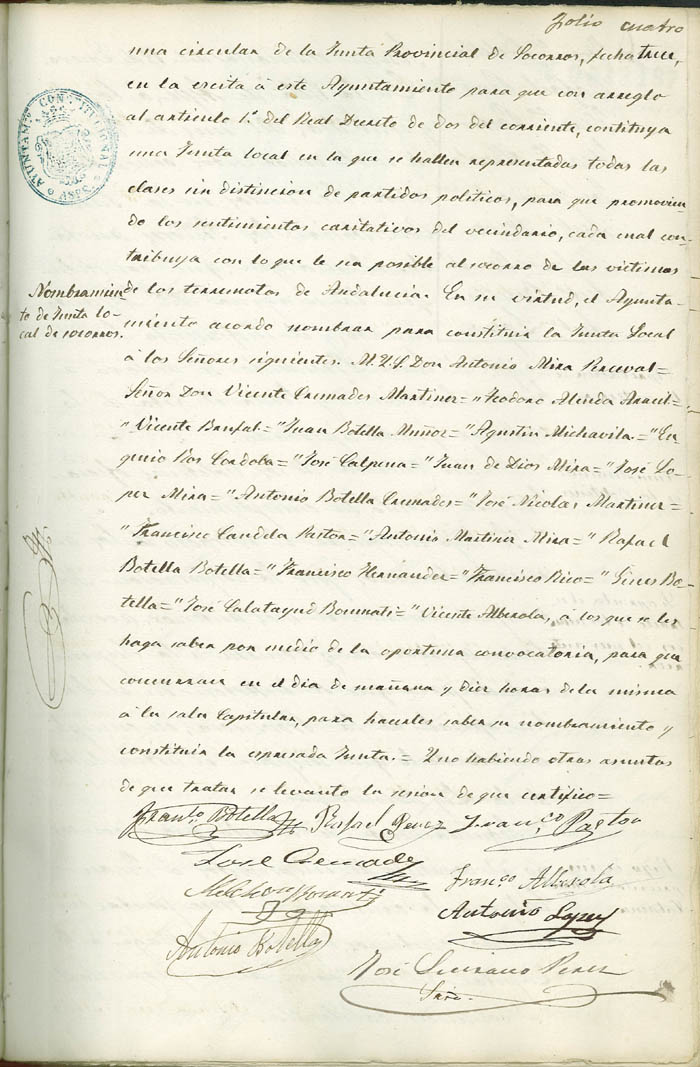 Folio cuatro
una circular de la Junta Provincial de Socorros, fecha trece,
en la escita á este Ayuntamiento para que con arreglo
al articulo 1.º del Real Decreto de dos del corriente, contituya
una Junta local en la que se hallen representadas todas las
clases sin distincion de partidos politicos, para que promovien-
do los sentimientos caritativos del vecindario, cada cual con-
tribuya con lo que le sea posible al socorro de las victimas
de los terremotos de Andalucia. En su virtud, el Ayunta-
miento acordo nombrar para constituir la Junta Local
á los Señores siguientes. M. Y. S. Don Antonio Mira Perceval=
Señor Don Vicente Cremades Martinez= "Teodoro Alenda Aracil=
"Vicente Brufal= "Juan Botella Muñoz= "Agustin Michavila= "Eu-
genio Ros Cordoba= "José Calpena= "Juan de Dios Mira= "José Lo-
pez Mira= "Antonio Botella Cremades= "José Nicolas Martinez=
"Francisco Candela Pastor= "Antonio Martinez Mira= "Rafael
Botella Botella= "Francisco Hernandez= "Francisco Rico= "Gines Bo-
tella= "José Calatayud Bonmati= "Vicente Alberola, á los que se les
haga saber por medio de la oportuna convocatoria, para que
concurran en el dia de mañana y diez horas de la misma
á la sala Capitular, para hacerles saber su nombramiento y
constituir la espresada Junta.= Y no habiendo otros asuntos
de que tratar se levanto la sesion de que certifico=
Nombramien-
to de Junta lo-
cal de socorros.
AYUNTAM. CONSTITUCIONAL
ASPE
Franco. Botella
Rafael Perez
Franco. Pastor
José Cremades
Franco. Alberola
Melchor
Antonio Lopez
Antonio Botella
José Perez
Srio.